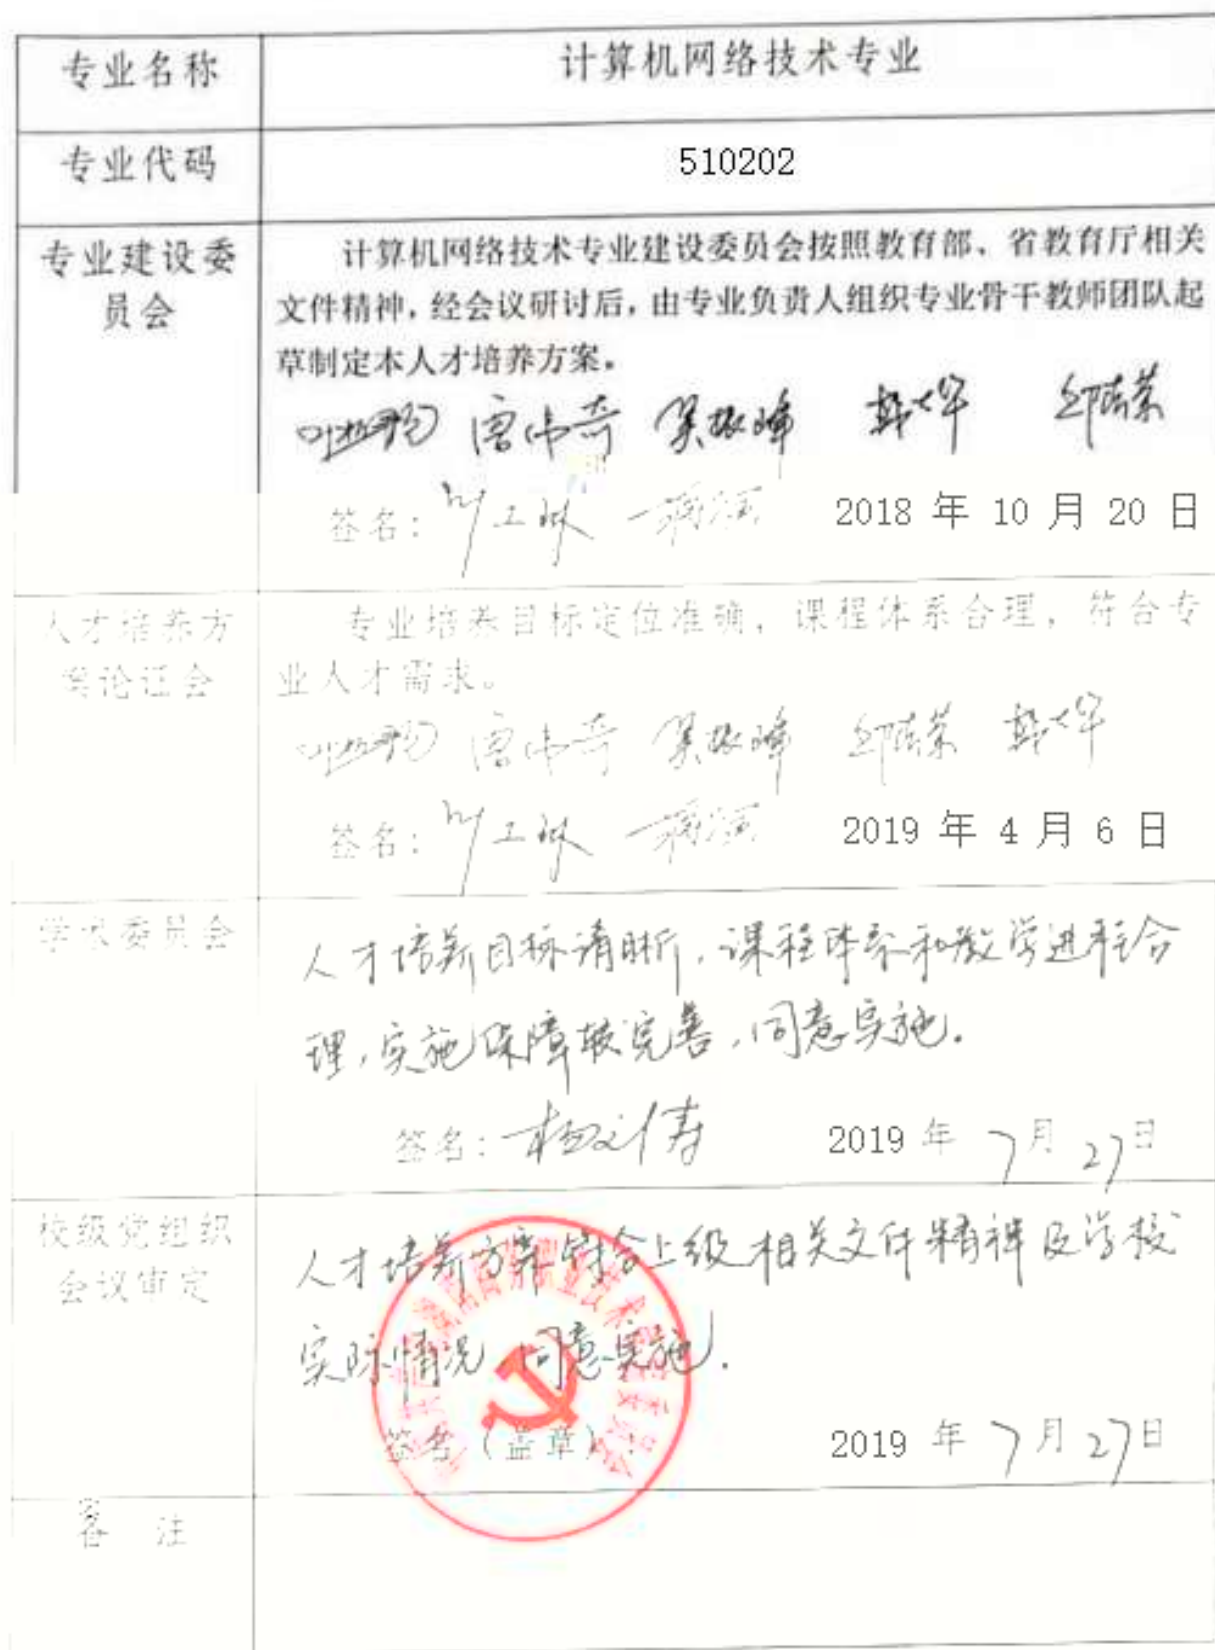 专业名称
计算机网络技术专业
专业代码
510202
专业建设委
员会
计算机网络技术专业建设委员会按照教育部、省教育厅相关
文件精神，经会议研讨后，由专业负责人组织专业骨干教师团队起
草制定本人才培养方案。
签名：
2018 年 10 月 20 日
人才培养方
案论证会
专业培养目标定位准确，课程体系合理，符合专
业人才需求。
签名：
2019 年 4 月 6 日
学术委员会
人才培养目标清晰，课程体系和教学进程合
理，实施保障较完善，同意实施。
签名：
2019 年 7 月 27 日
校级党组织
会议审定
人才培养方案符合上级相关文件精神及学校
实际情况，同意实施.
签名（盖章）：
2019 年 7 月 27 日
备 注